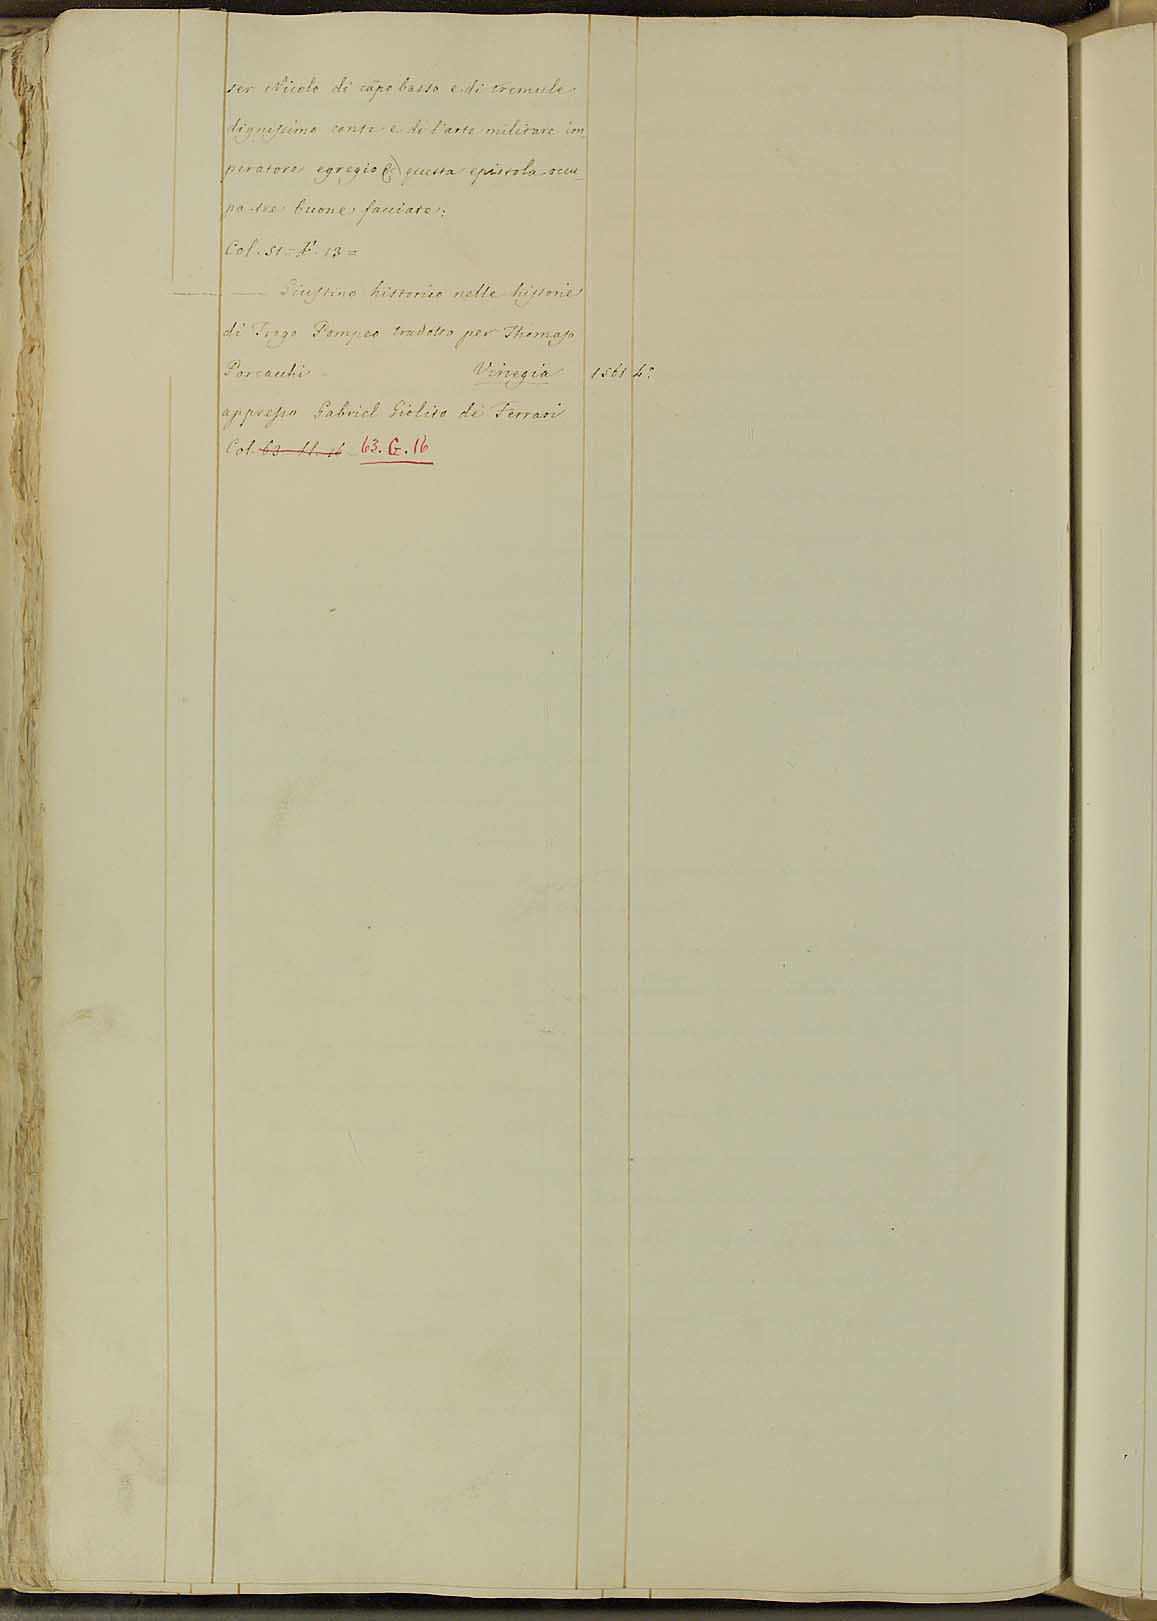 ser Nicolo di cāpo basso e di tremule
dignissimo conte e di l'arte militare im-
peratore egregio &c) questa epistola occu-
pa tre buone facciate:
Col. 51 = F. 13 =
—— —— Giustino historico nelle historie
di Trogo Pompeo tradotto per Thomaso
Porcacchi Vinegia 1561 4.°
appresso Gabriel Giolito de Ferrari
Col. 63. G. 16